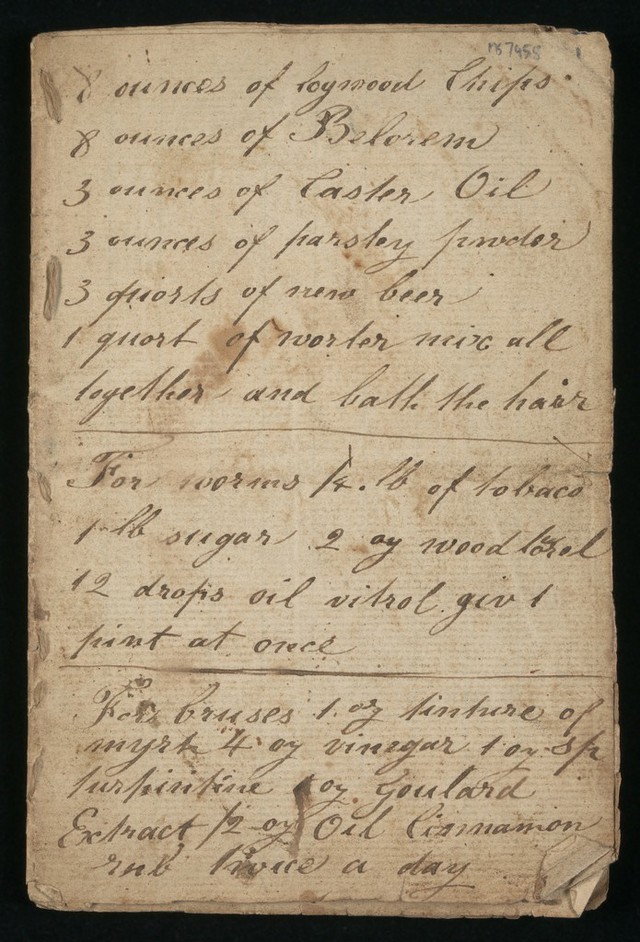 ms 7455 1
8 ounces of logwood Chips
8 ounces of Belorem
3 ounces of Caster Oil
3 ounces of parsley powder
3 quorts of new beer
1 quort of worter mix all
together and bath the hair
For worms 1/4 lb of tobaco
1 lb sugar 2 oz wood
12 drops oil vitrol giv 1
pint at once
For bruses 1 oz tinture of
myrh 4 oz vinegar 1 oz sp
turpintine 1 oz Goulard
Extract 1/2 oz Oil Cinnamon
rub twice a day